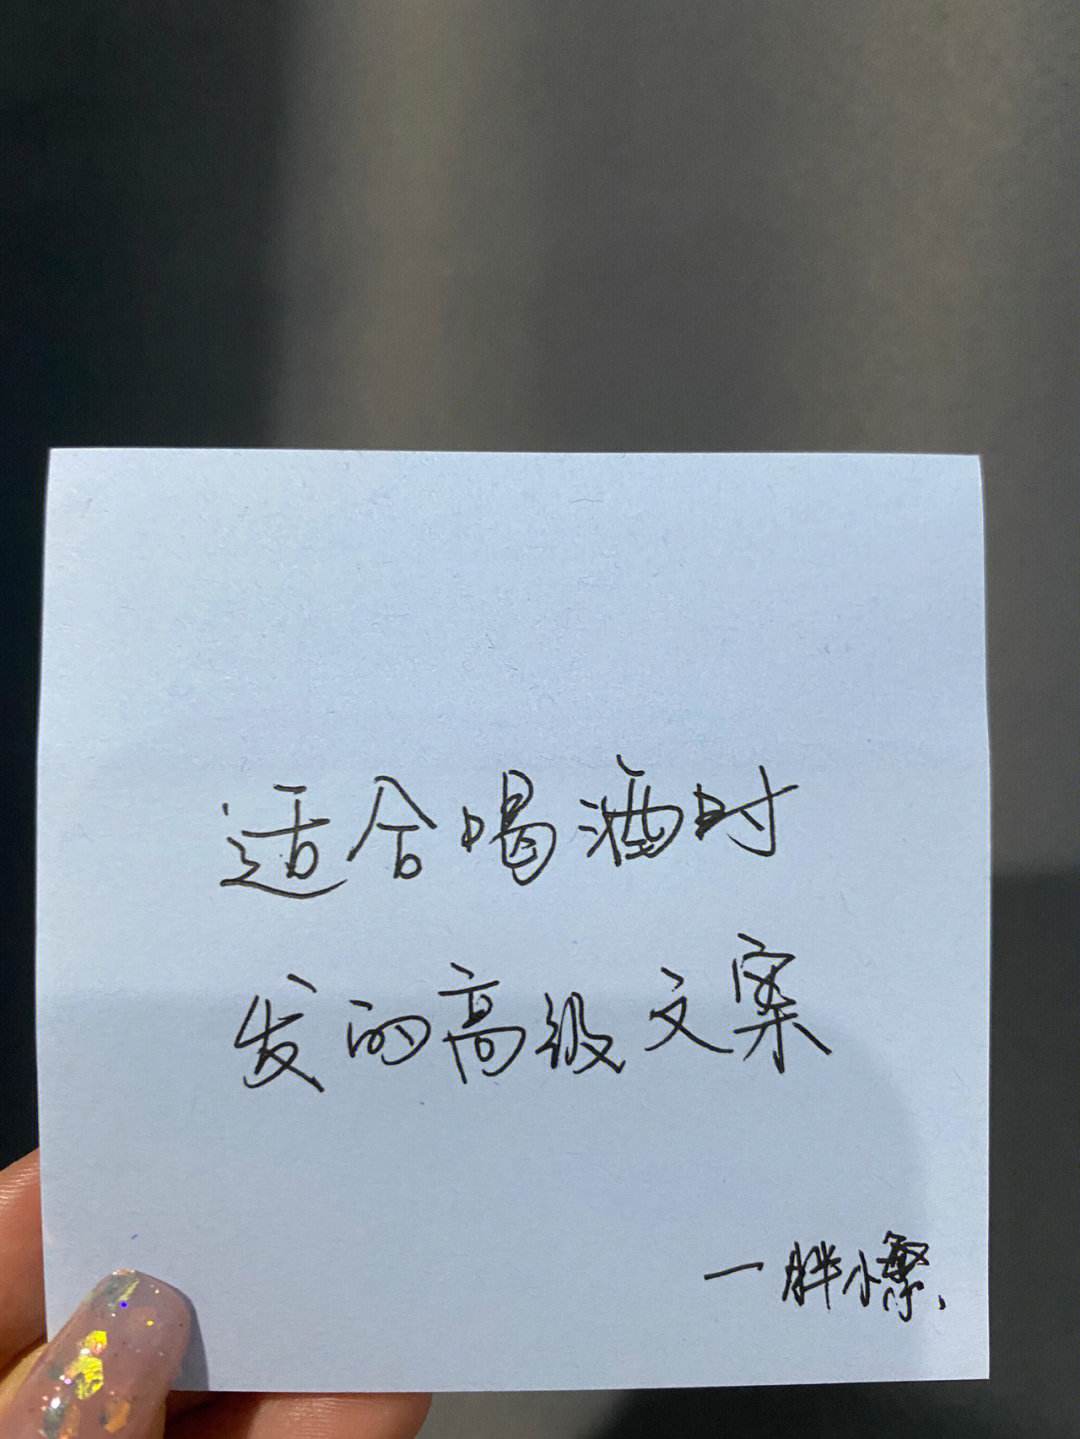 适合喝酒时
发的高级文案
一胖小